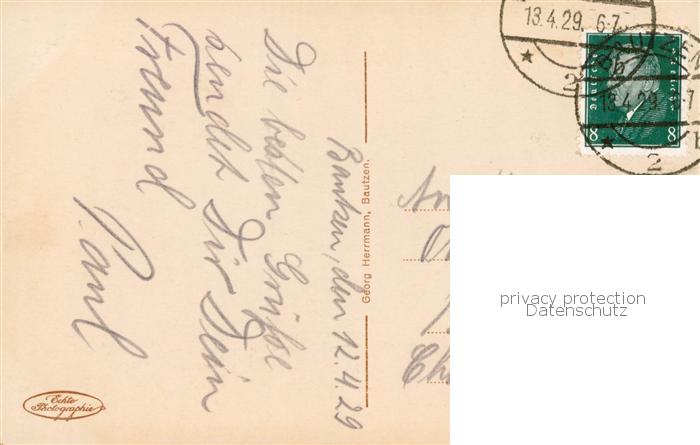 Bautzen, den 12.4.29
Die besten Grüße
sendet Dir Dein
Freund
Paul
Georg Herrmann, Bautzen.
Echte
Photographie
13.4.29. 6-7
2
13.4.29. 6-7
b
2
8 8
privacy protection
Datenschutz